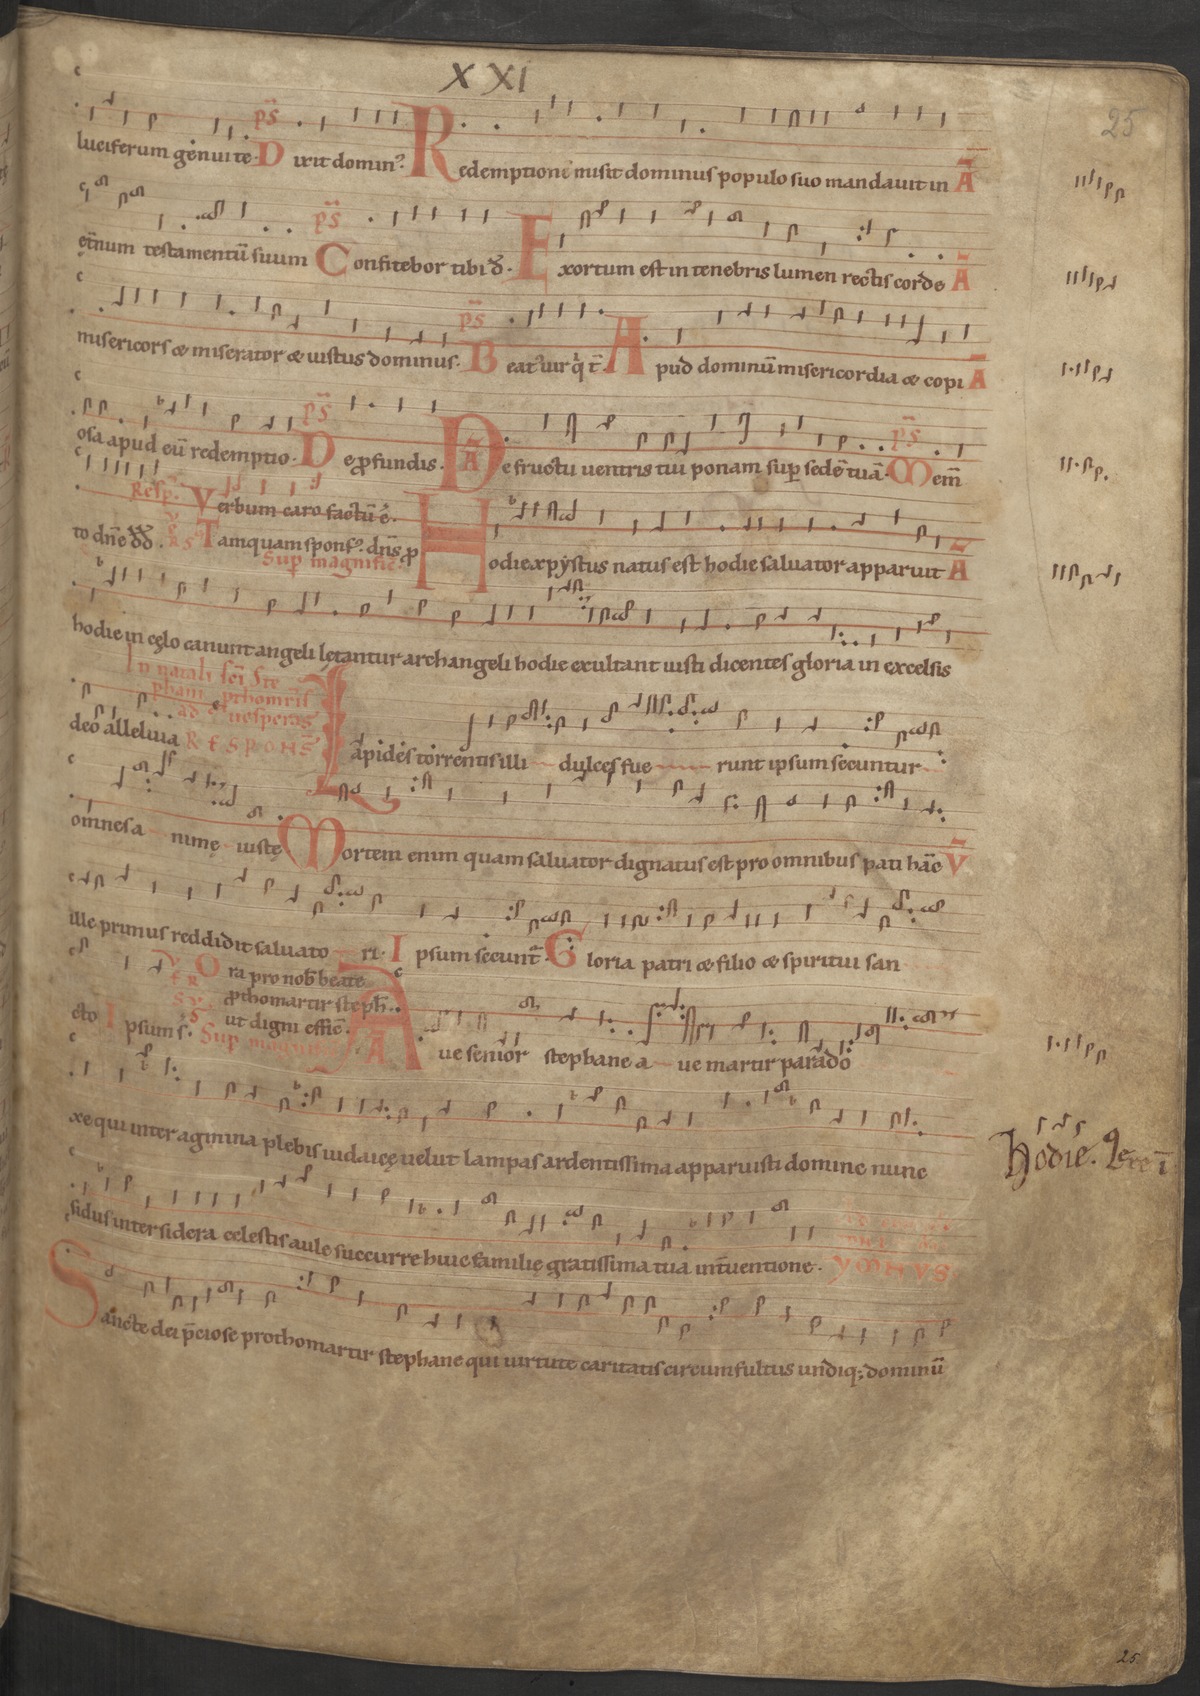 XXI
25
luciferum genui te. D ixit domin⁹. R edemptionē misit dominus populo suo mandauit in A
et̄num testamentū suum C onfitebor tibi d̄. E xortum est in tenebris lumen rectis corde A
misericors & miserator & iustus dominus. B eat⁹ uir q̇ t̄. A pud dominū misericordia & copi A
osa apud eū redemptio. D e ꝓfundis. A D e fructu uentris tui ponam suꝑ sedē tuā. M em̄
Resp̄. V erbum caro factū ē.
to dn̄e dd̄. T amquam spons⁹. dn̄s ꝓ H odie xpȳstus natus est hodie saluator apparuit A
Sup magnific̄.
hodie in cęlo canunt angeli lętantur archangeli hodie exultant iusti dicentes gloria in excelsis
In natali sc̄i Ste
phani ꝓthom̄ris
ad uesperas
deo alleluia RESPONS̄ L apides torrentis illi dulces fue runt ipsum secuntur
omnes a nimę iustę M ortem enim quam saluator dignatus est pro omnibus pati hāc V
ille primus reddidit saluato ri. I psum secunt̄ G loria patri & filio & spiritui san
O ra pro nob̄ beate
ꝓthomartir steph̄.
cto I psum s̄. ut digni effic̄. A ue senior stephane a ue martir parado
Sup magnific̄
xe qui inter agmina plebis iudaicę uelut lampas ardentissima apparuisti domine nunc
Hodie.
sidus inter sidera celestis aule succurre huic familię gratissima tua int̄uentione. YMNVS.
S ancte dei p̄ciose prothomartir stephane qui uirtute caritatis circumfultus undiq; dominū
25